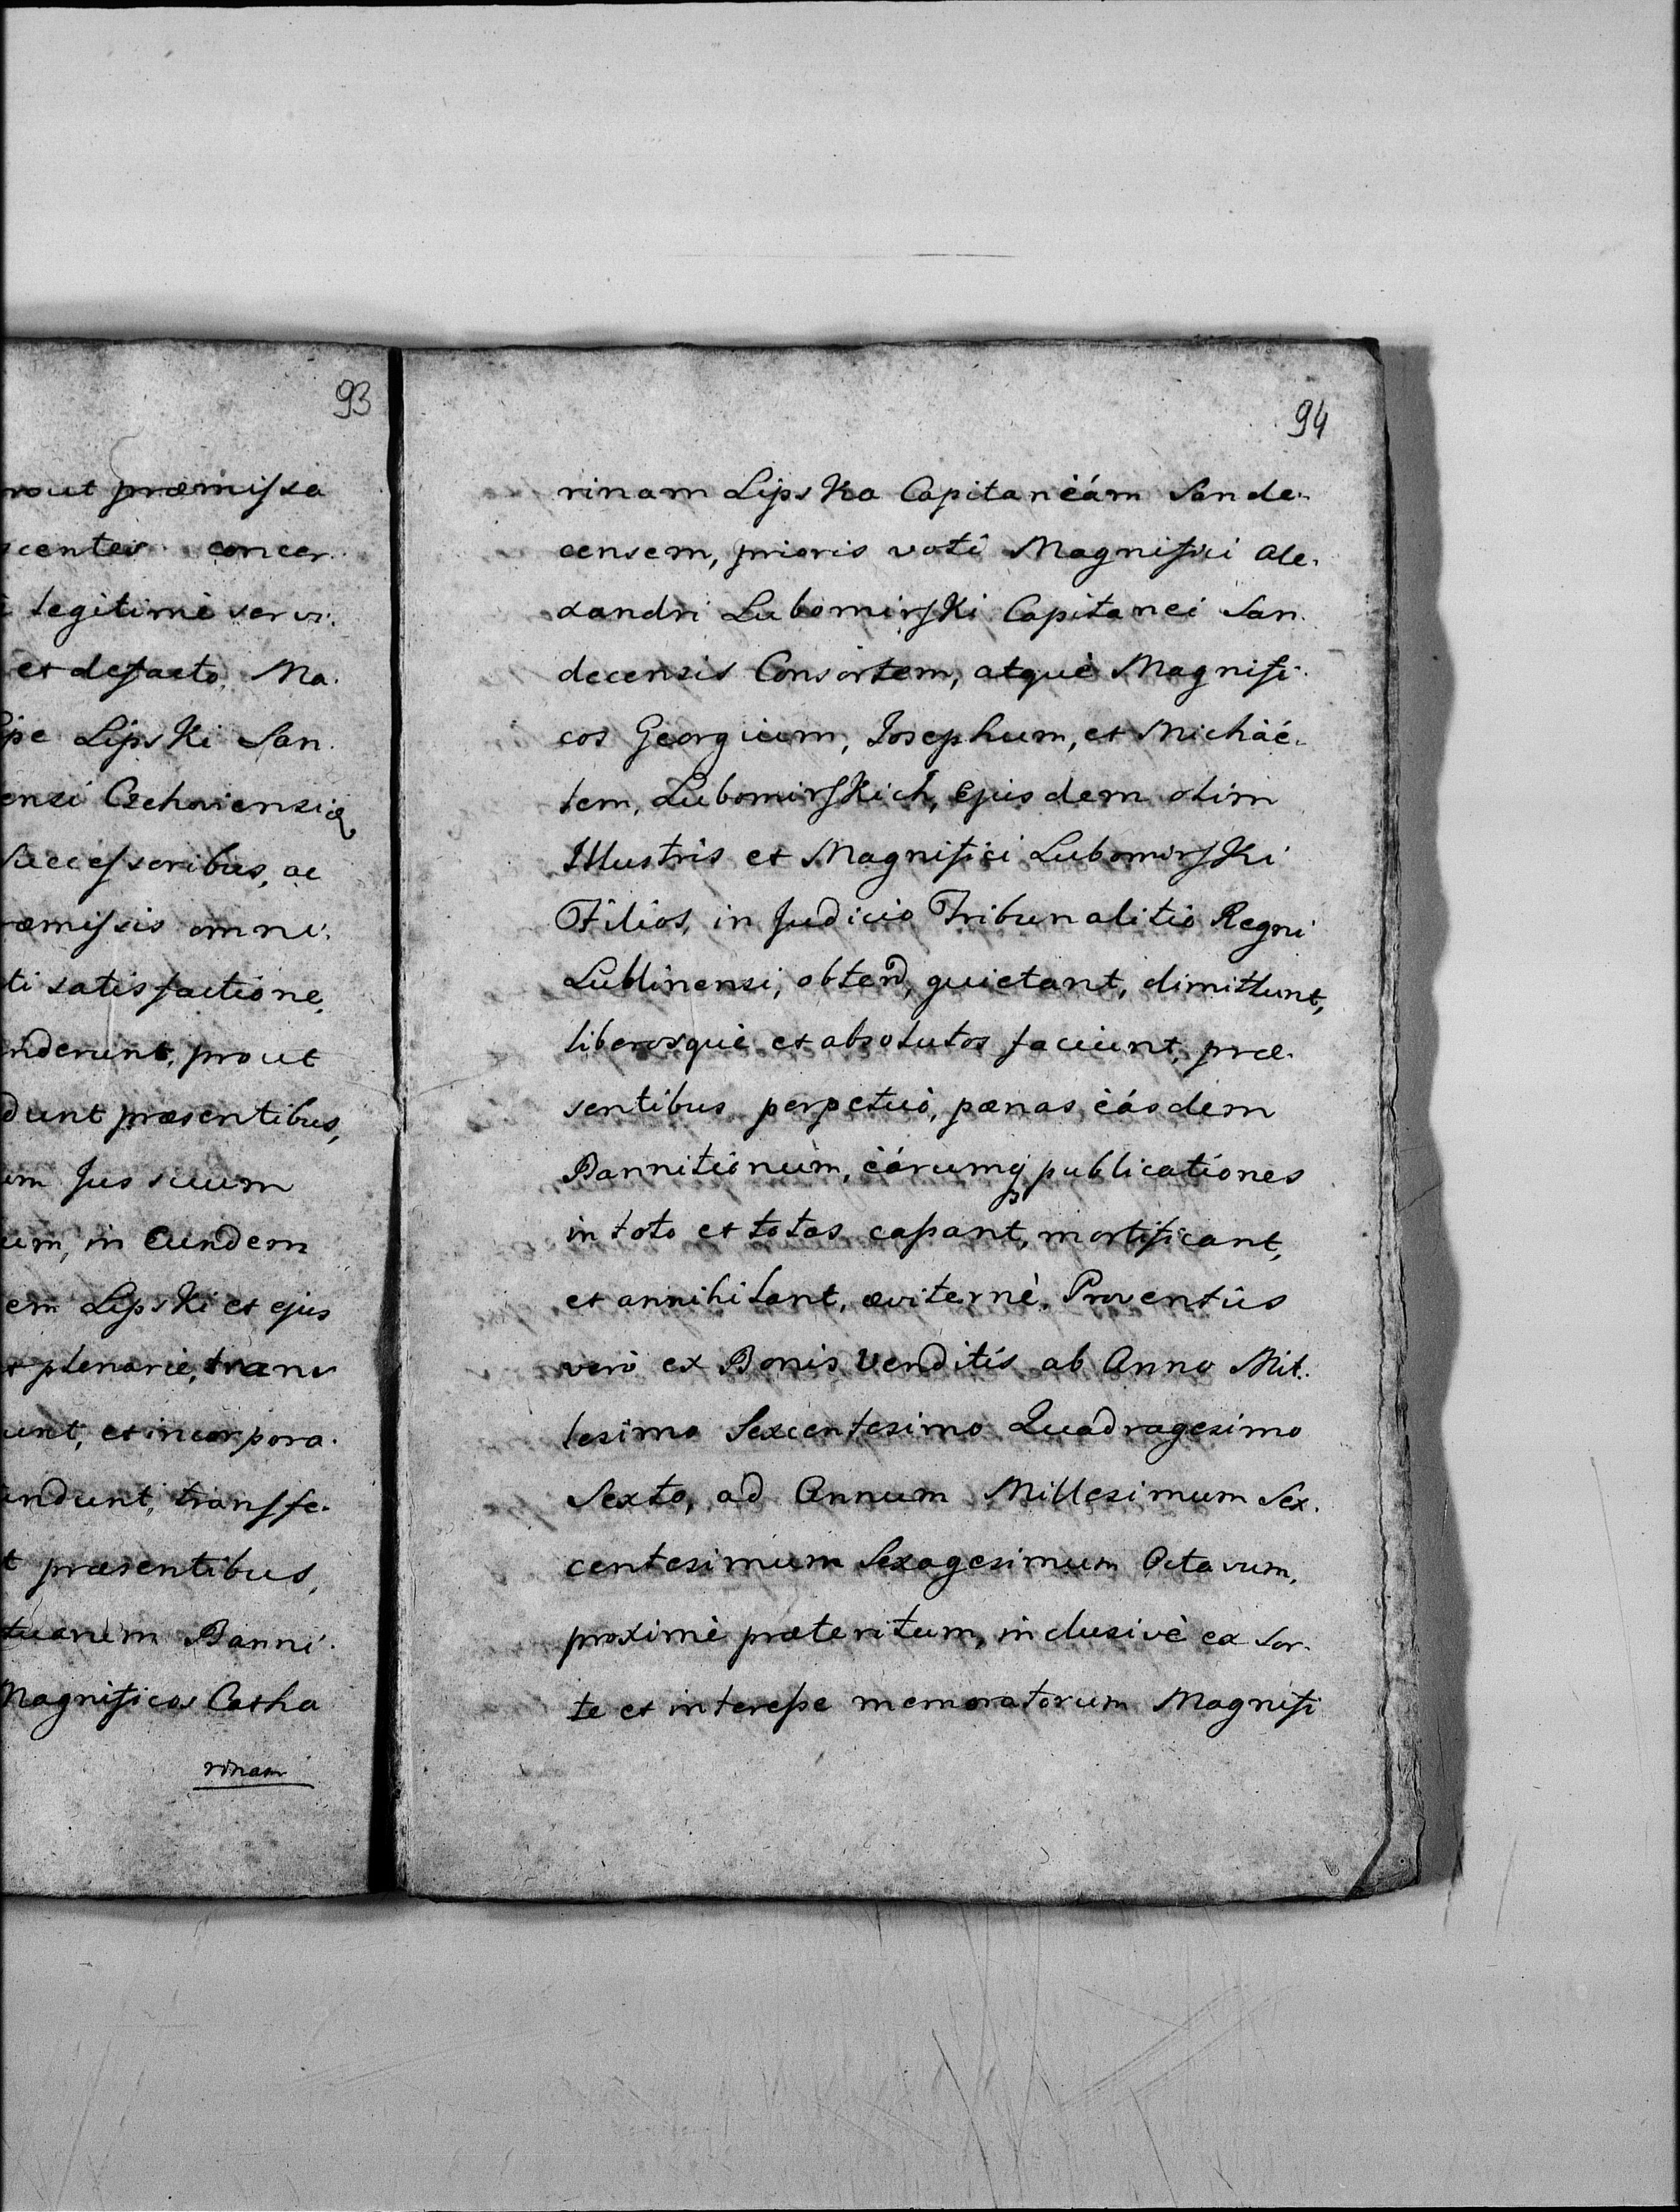 93
rout præmissa
scentes concer.
legitime servi.
et defacto, Ma.
Lipski San.
ensi Czchoviensiq
Successoribus, ac
æmissis omni.
ti satisfactione,
nderunt, prout
dunt præsentibus,
um Jus suum
um, in Eundem
em Lipski et ejus
plenarie, trans
unt, et incorpora.
undunt, transfe.
t præsentibus,
tuanem Banni.
Magnificos Catha
rinam
94
rinam Lipska Capitaneám Sande.
censem, prioris voti Magnifici Ale.
xandri Lubomirski Capitanei San.
decensis Consortem, atquè Magnifi.
cos Georgium, Josephum, et Micháé.
lem, Lubomirskich, Ejusdem olim
Illustris et Magnifici Lubomirski
Filios, in Judicio Tribunalitio Regni
Lublinensi, obtend, quietant, dimittunt,
liberosquè et absolutos faciunt, præ.
sentibus perpetuò, pænas éásdem
Bannitionum, éárumq publicationes
in toto et totas cassant, mortificant,
et annihilant, æviternè. Proventus
verò ex Bonis Venditis ab Anno Mil.
lesimo Sexcentesimo Quadragesimo
Sexto, ad Annum Millesimum Sex.
centesimum Sexagesimum Octavum,
proximè præteritum, inclusivè ex Sor.
te et interesse memoratorum Magnifi